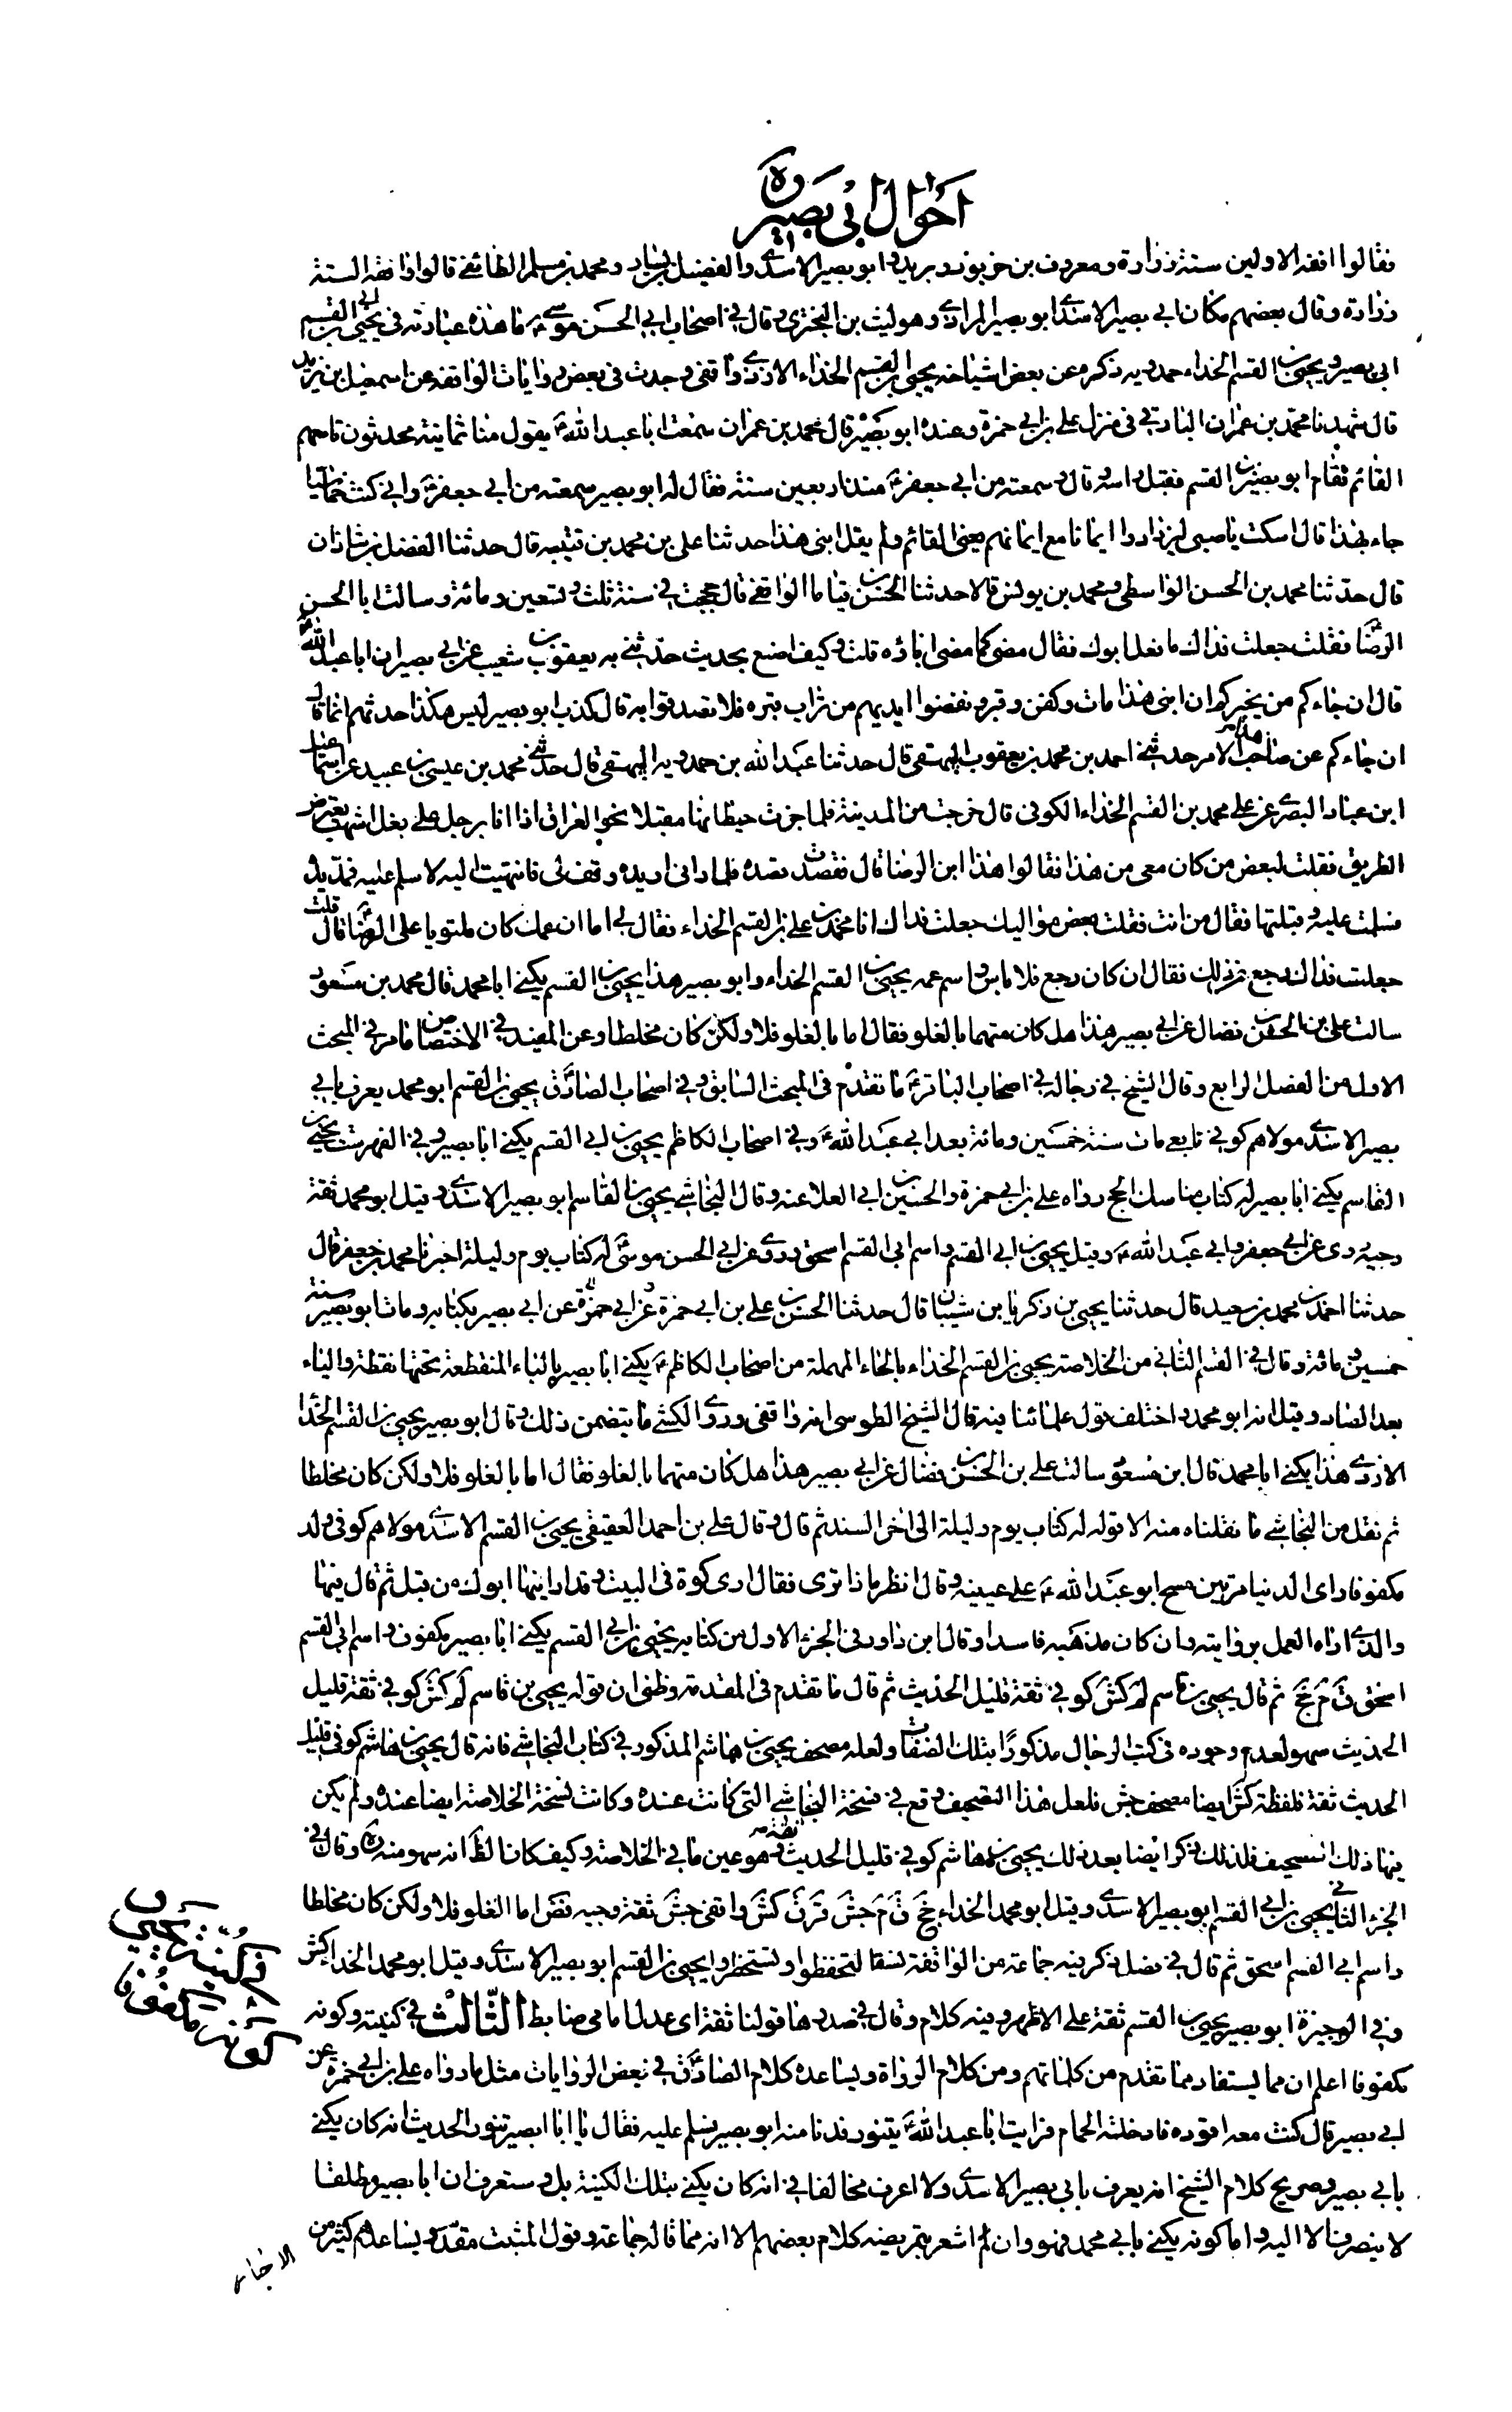 احوال ابی بصیره
فقالوا افقه الاولین ستة زرارة ومعروف بن خربوذ وبرید وابو بصیر الاسدی والفضیل بن یسار ومحمد بن مسلم الطائفی قالوا وافقه الستة
زرارة وقال بعضهم مکان ابی بصیر الاسدی ابو بصیر المرادی وهو لیث بن البختری وقال فی اصحاب ابی الحسن موسی ع ما هذه عبارته فی یحیی بن ابی القسم
ابی بصیر ویحیی بن القسم الحذاء حمدویه ذکره عن بعض اشیاخه یحیی بن القسم الحذاء الازدی واقفی وجدت فی بعض روایات الواقفه عن اسمعیل بن یزید
قال شهدنا محمد بن عمران الباقری فی منزل علی بن ابی حمزة وعنده ابو بصیر قال محمد بن عمران سمعت ابا عبد الله ع یقول منا ثمانیة محدثون تاسعهم
القائم فقام ابو بصیر بن القسم فقبل راسه وقال سمعته من ابی جعفر ع منذ اربعین سنة فقال له ابو بصیر سمعته من ابی جعفر ع وانی کنت خماسیا
جاء بهذا قال اسکت یا صبی لیزدادوا ایمانا مع ایمانهم یعنی القائم ولم یقل ابنی هذا حدثنا علی بن محمد بن قتیبه قال حدثنا الفضل بن شاذان
قال حدثنا محمد بن الحسن الواسطی ومحمد بن یونس قالا حدثنا الحسن بن قیاما الواقفی قال حججت فی سنة ثلث وتسعین ومائة وسالت ابا الحسن
الرضا ع فقلت جعلت فداک ما فعل ابوک فقال مضی کما مضی اباؤه قلت وکیف اصنع بحدیث حدثنی به یعقوب بن شعیب عن ابی بصیر ان ابا عبد الله ع
قال ان جاءکم من یخبرکم ان ابنی هذا مات وکفن وقبر ونفضوا ایدیهم من تراب قبره فلا تصدقوا به قال کذب ابو بصیر لیس هکذا حدثهم انما قال
ان جاءکم عن صاحب هذا الامر حدثنی احمد بن محمد بن یعقوب البیهقی قال حدثنا عبد الله بن حمدویه البیهقی قال حدثنی محمد بن عیسی بن عبید عن اسمعیل
ابن عباد البصری عن علی محمد بن القسم الحذاء الکوفی قال خرجت من المدینة فلما جزت حیطانها مقبلا نحو العراق اذا انا برجل علی بغل اشهب یعترض
الطریق فقلت لبعض من کان معی من هذا فقالوا هذا ابن الرضا قال فقصدت قصده فلما رانی اریده وقف لی فانتهیت الیه لاسلم علیه فمد یده
فسلمت علیه وقبلتها فقال من انت فقلت بعض موالیک جعلت فداک انا محمد بن علی بن القسم الحذاء فقال لی اما ان عمک کان ملتویا علی الرضا ع قال قلت
جعلت فداک رجع عن ذلک فقال ان کان رجع فلا باس واسم عمه یحیی بن القسم الحذاء وابو بصیر هذا یحیی بن القسم یکنی ابا محمد قال محمد بن مسعود
سالت علی بن الحسن بن فضال عن ابی بصیر هذا هل کان متهما بالغلو فقال اما بالغلو فلا ولکن کان مخلطا وعن المفید فی الاختصاص ما مر فی المبحث
الاول من الفصل الرابع وقال الشیخ فی رجاله فی اصحاب الباقر ع ما تقدم فی المبحث السابق وفی اصحاب الصادق یحیی بن القسم ابو محمد یعرف بابی
بصیر الاسدی مولاهم کوفی تابعی مات سنة خمسین ومائة بعد ابی عبد الله ع وفی اصحاب الکاظم یحیی بن ابی القسم یکنی ابا بصیر وفی الفهرست یحیی بن
القاسم یکنی ابا بصیر له کتاب مناسک الحج رواه علی بن ابی حمزة والحسین بن ابی العلا عنه وقال النجاشی یحیی بن القاسم ابو بصیر الاسدی وقیل ابو محمد ثقة
وجیه روی عن ابی جعفر وابی عبد الله ع وقیل یحیی بن ابی القسم واسم ابی القسم اسحق وروی عن ابی الحسن موسی له کتاب یوم ولیلة اخبرنا محمد بن جعفر قال
حدثنا احمد بن محمد بن سعید قال حدثنا یحیی بن زکریا بن شیبان قال حدثنا الحسن بن علی بن ابی حمزة عن ابی حمزة عن ابی بصیر بکتابه ومات ابو بصیر سنة
خمسین ومائة وقال فی القسم الثانی من الخلاصة یحیی بن القسم الحذاء بالحاء المهملة من اصحاب الکاظم ع یکنی ابا بصیر بالباء المنقطعة تحتها نقطة والیاء
بعد الصاد وقیل انه ابو محمد واختلف قول علمائنا فیه قال الشیخ الطوسی انه واقفی وروی الکشی ما یتضمن ذلک وقال ابو بصیر یحیی بن القسم الحذا
الازدی هذا یکنی ابا محمد قال ابن مسعود سالت علی بن الحسن بن فضال عن ابی بصیر هذا هل کان متهما بالغلو فقال اما بالغلو فلا ولکن کان مخلطا
ثم نقل من النجاشی ما نقلناه منه الا قوله له کتاب یوم ولیلة الی اخر السند ثم قال وقال علی بن احمد العقیقی یحیی بن القسم الاسدی مولاهم کوفی ولد
مکفوفا رای الدنیا مرتین مسح ابو عبد الله ع علی عینیه وقال انظر ماذا تری فقال اری کوة فی البیت وقد اراینها ابوک من قبل ثم قال فیها
والذی اراه العمل بروایته وان کان مذهبه فاسدا وقال ابن داود فی الجزء الاول من کتابه یحیی بن ابی القسم یکنی ابا بصیر مکفوف واسم ابی القسم
اسحق ق م جخ ثم قال یحیی بن قاسم لم کش کوفی ثقة قلیل الحدیث ثم قال ما تقدم فی المقدمة وظنی ان قوله یحیی بن قاسم لم کش کوفی ثقة قلیل
الحدیث سهو لعدم وجوده فی کتب الرجال مذکورا بتلک الصفات ولعله مصحف یحیی بن هاشم المذکور فی کتاب النجاشی فانه قال یحیی بن هاشم کوفی قلیل
الحدیث ثقة فلفظة کش ایضا مصحف جش فلعل هذا التصحیف وقع فی نسخة النجاشی التی کانت عنده وکانت نسخة الخلاصة ایضا عنده ولم یکن
فیها ذلک التصحیف فلذلک ذکر ایضا بعد ذلک یحیی بن هاشم کوفی قلیل الحدیث ثقة وهو عین ما فی الخلاصة وکیف کان الظ انه سهو منه ره وقال فی
الجزء الثانی یحیی بن ابی القسم ابو بصیر الاسدی وقیل ابو محمد الحذاء جخ ق م جش قر ق کش واقفی جش ثقة وجیه فض اما الغلو فلا ولکن کان مخلطا
واسم ابی القسم اسحق ثم قال فی فصل ذکر فیه جماعة من الواقفة نسقا لتحفظوا وتستحظروا یحیی بن القسم ابو بصیر الاسدی وقیل ابو محمد الحذاء کش
وفی الوجیزة ابو بصیر یحیی بن القسم ثقة علی الاظهر وفیه کلام وقال فی صدرها قولنا ثقة ای عدل امامی ضابط الثالث فی کنیته وکونه
مکفوفا اعلم ان مما یستفاد مما تقدم من کلماتهم ومن کلام الرواة ویساعده کلام الصادق ع فی بعض الروایات مثل ما رواه علی بن ابی حمزة عن
ابی بصیر قال کنت معه اقوده فادخلته الحمام فرایت ابا عبد الله ع یتنور فدنا منه ابو بصیر فسلم علیه فقال یا ابا بصیر تنور الحدیث انه کان یکنی
بابی بصیر وصریح کلام الشیخ انه یعرف بابی بصیر الاسدی ولا اعرف مخالفا فی انه کان یکنی بتلک الکنیة بل وستعرف ان ابا بصیر مطلقا
لا ینصرف الا الیه واما کونه یکنی بابی محمد فهو وان اشعر بتمریضه کلام بعضهم الا انه مما قاله جماعة وقول المثبت مقدم ویساعدهم کثیر من
الاخبار
فی کنیة یحیی و
کونه مکفوفا